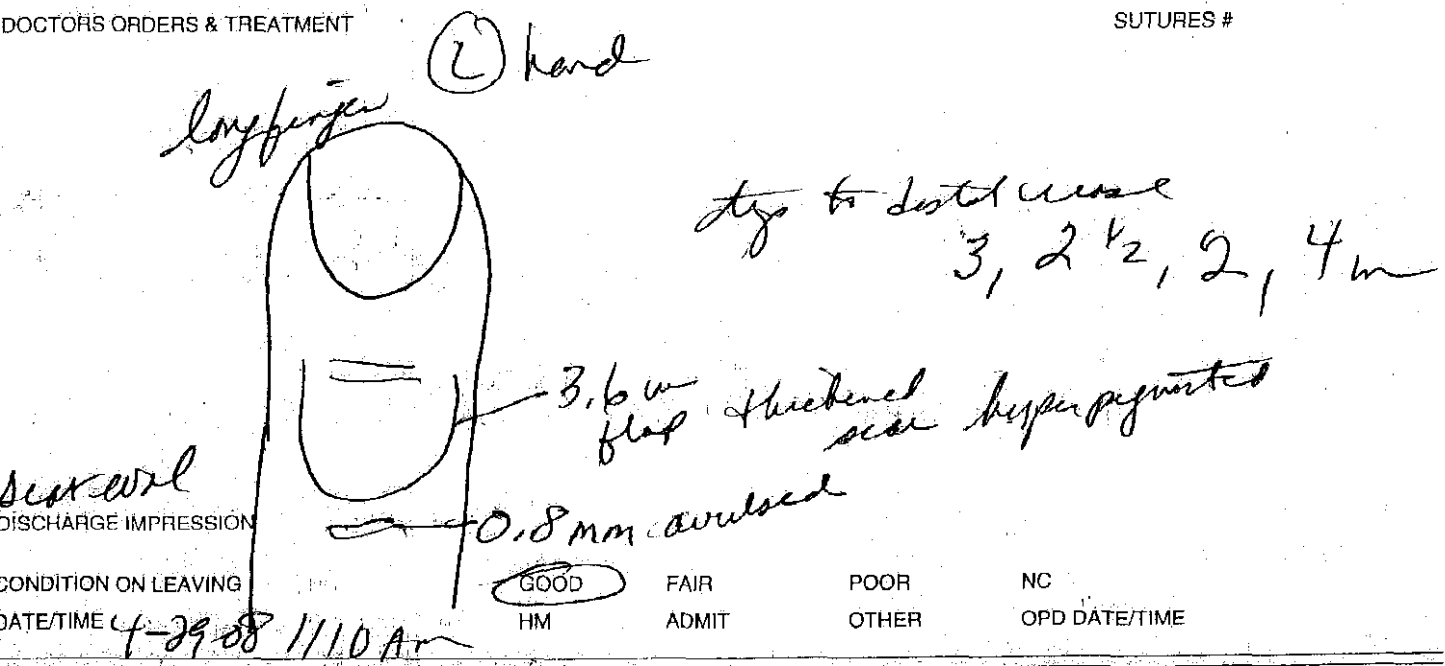 DOCTORS ORDERS & TREATMENT
SUTURES #
(L) hand
long finger
tips to distal crease
3, 2 1/2, 2, 4 m
3.6 cm
flap thickened
scar hyperpigmented
Scar eval
DISCHARGE IMPRESSION
0.8 mm avulsed
CONDITION ON LEAVING GOOD FAIR POOR NC
DATE/TIME 4-29-08 1110 Am HM ADMIT OTHER OPD DATE/TIME